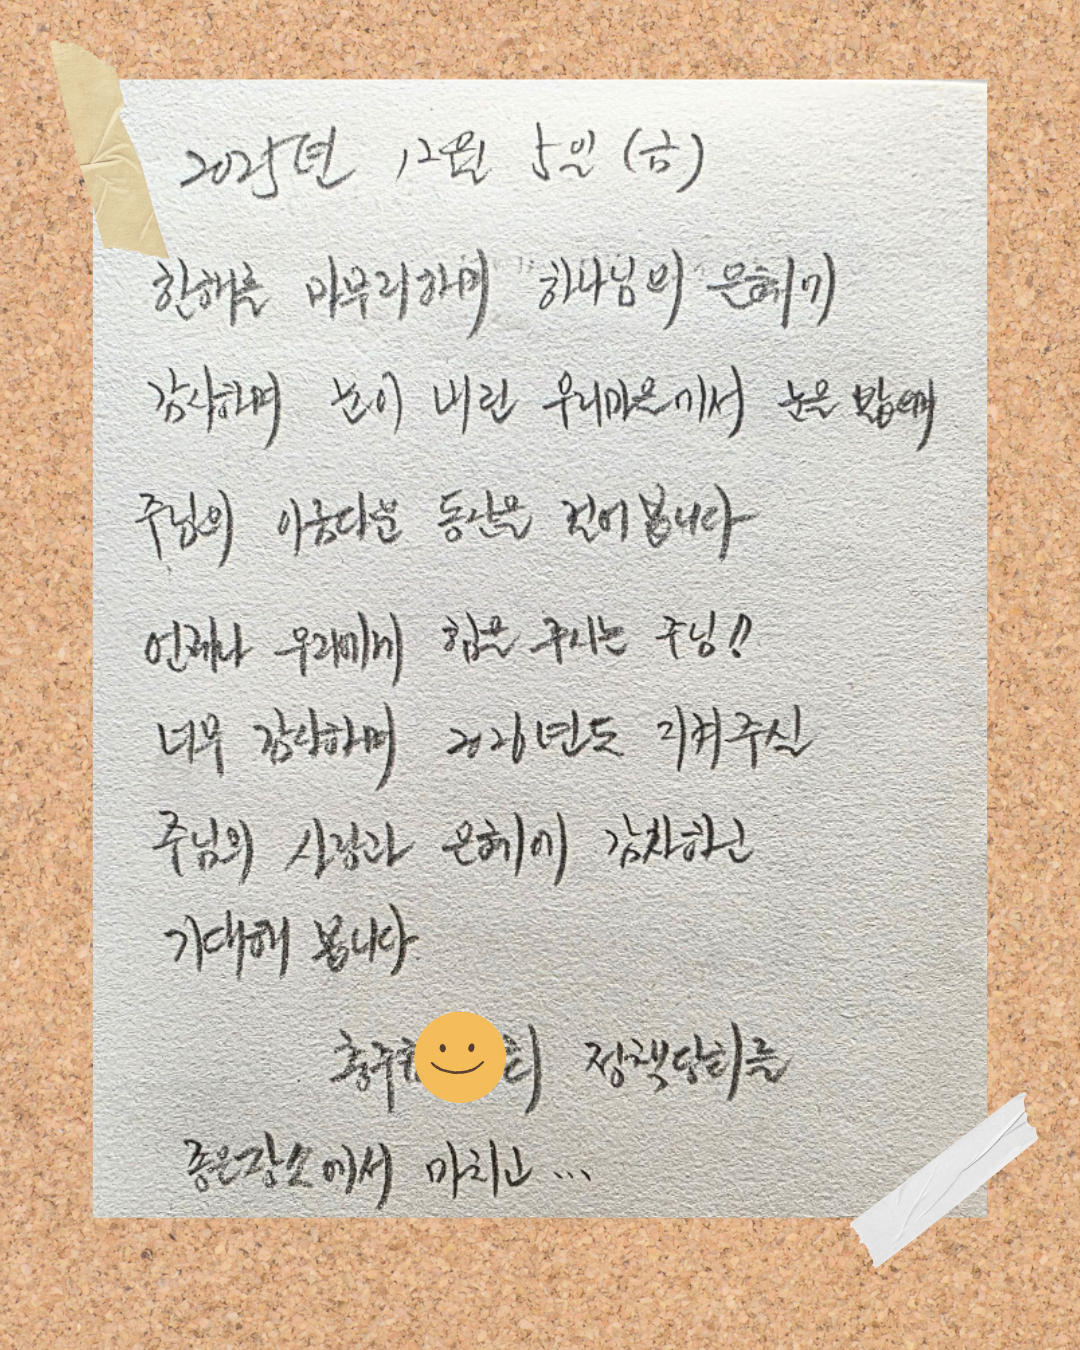 2025년 12월 5일 (금)
한해를 마무리하며 하나님의 은혜에
감사하며 눈이 내린 우리마을에서 눈을 밟으며
주님의 아름다운 동산을 걸어봅니다
언제나 우리에게 힘을 주시는 주님!!
너무 감사하며 2026년도 지켜주실
주님의 사랑과 은혜에 감사하고
기대해 봅니다.
충주 정책당회를
좋은장소에서 마치고...